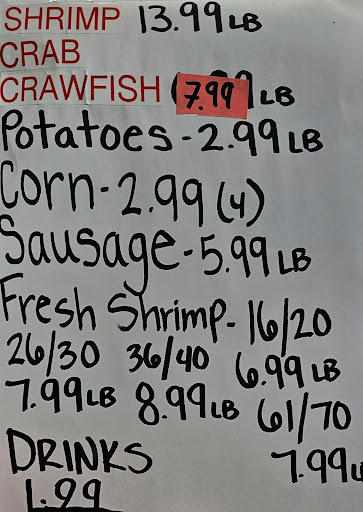 SHRIMP 13.99 LB
CRAB
CRAWFISH 7.99 LB
Potatoes - 2.99 LB
Corn - 2.99 (4)
Sausage - 5.99 LB
Fresh Shrimp - 16/20
26/30 36/40 6.99 LB
7.99 LB 8.99 LB 61/70
DRINKS 7.99
1.99